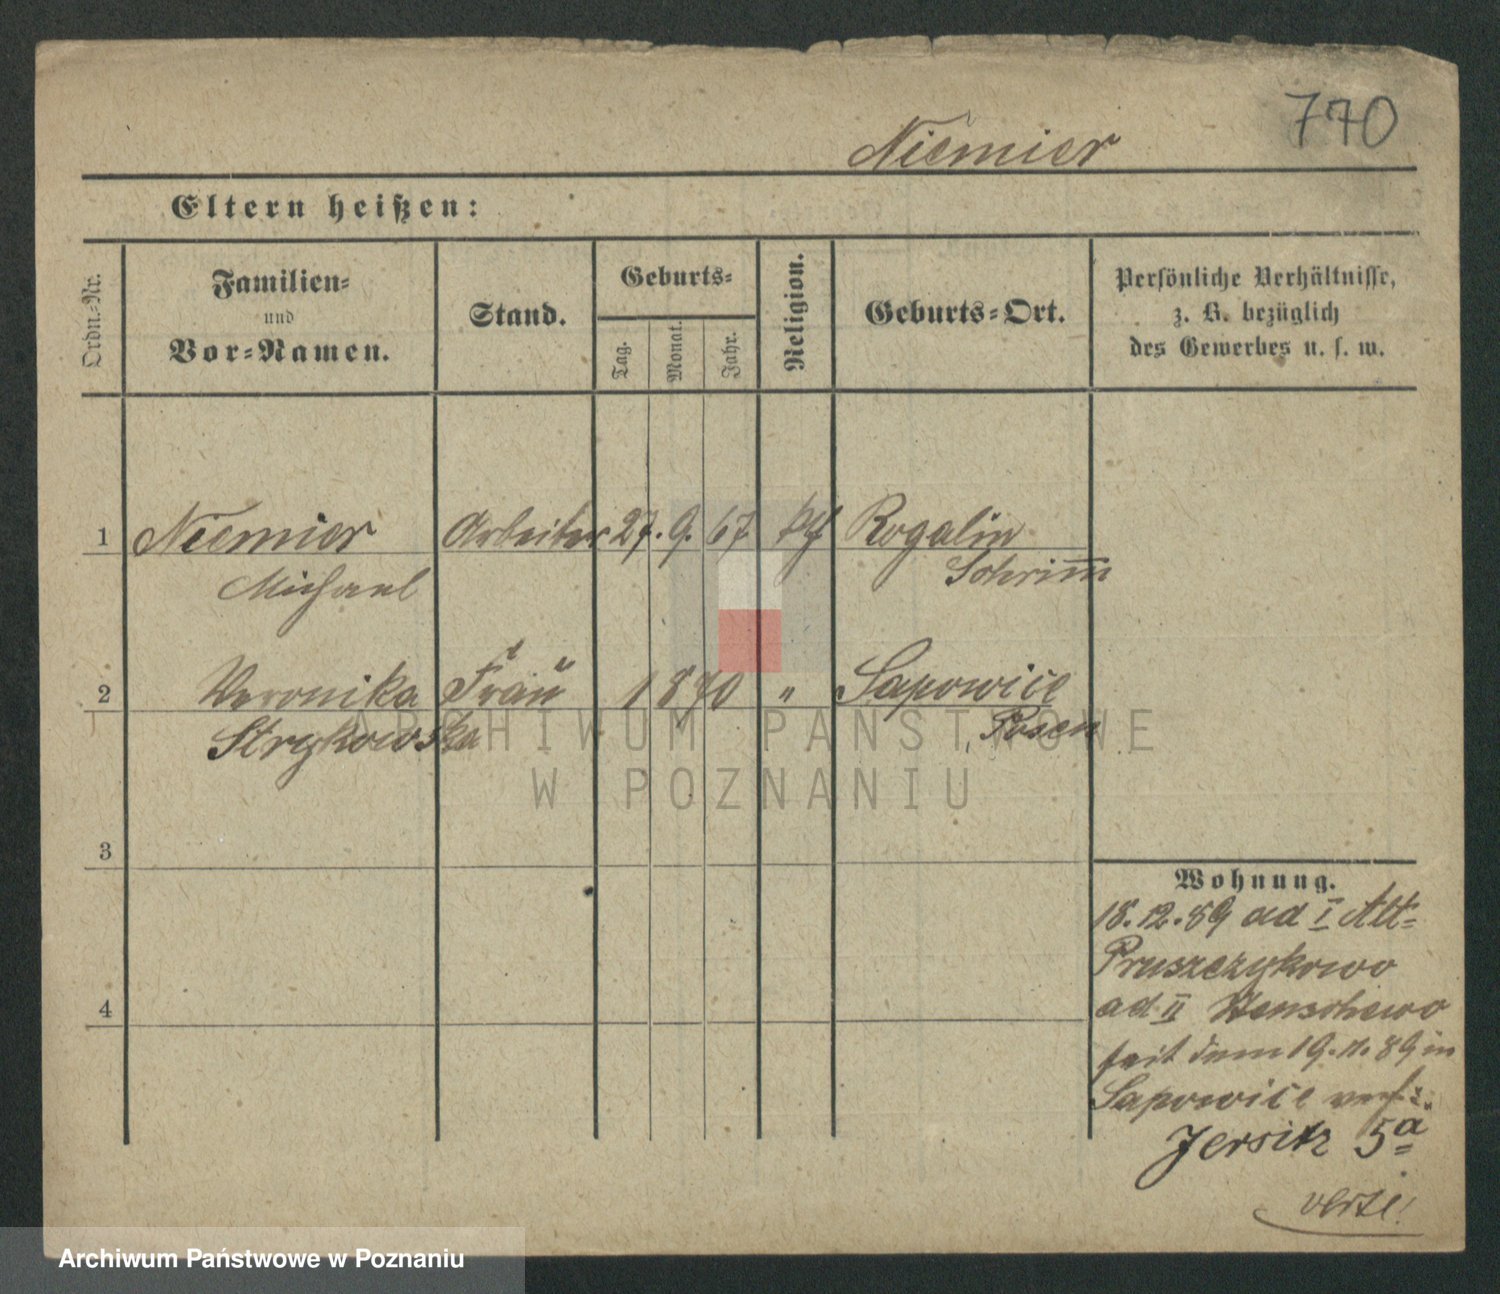 770
Niemier
Eltern heißen:
Ordn.-Nr.
Familien-
und
Vor-Namen.
Stand.
Geburts-
Tag.
Monat.
Jahr.
Religion.
Geburts-Ort.
Persönliche Verhältnisse,
z. B. bezüglich
des Gewerbes u. s. w.
1 Niemier Arbeiter 27. 9. 67 kth Rogalin
Michael Schrimm
2 Veronika Frau 1870 " Sapowice
Strykowska Posen
ARCHIWUM PAŃSTWOWE
W POZNANIU
3
4
Wohnung.
18.12.89 ad I Alt-
Pruszczykowo
ad II
seit dem 19.11.89 in
Sapowice verh:
Jersitz 5a
verte!
Archiwum Państwowe w Poznaniu